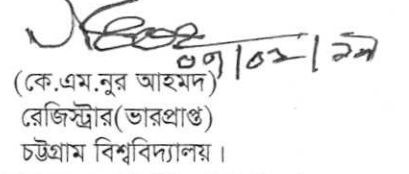 ০৭/০২/১৯
(কে.এম.নুর আহমদ)
রেজিস্ট্রার(ভারপ্রাপ্ত)
চট্টগ্রাম বিশ্ববিদ্যালয়।